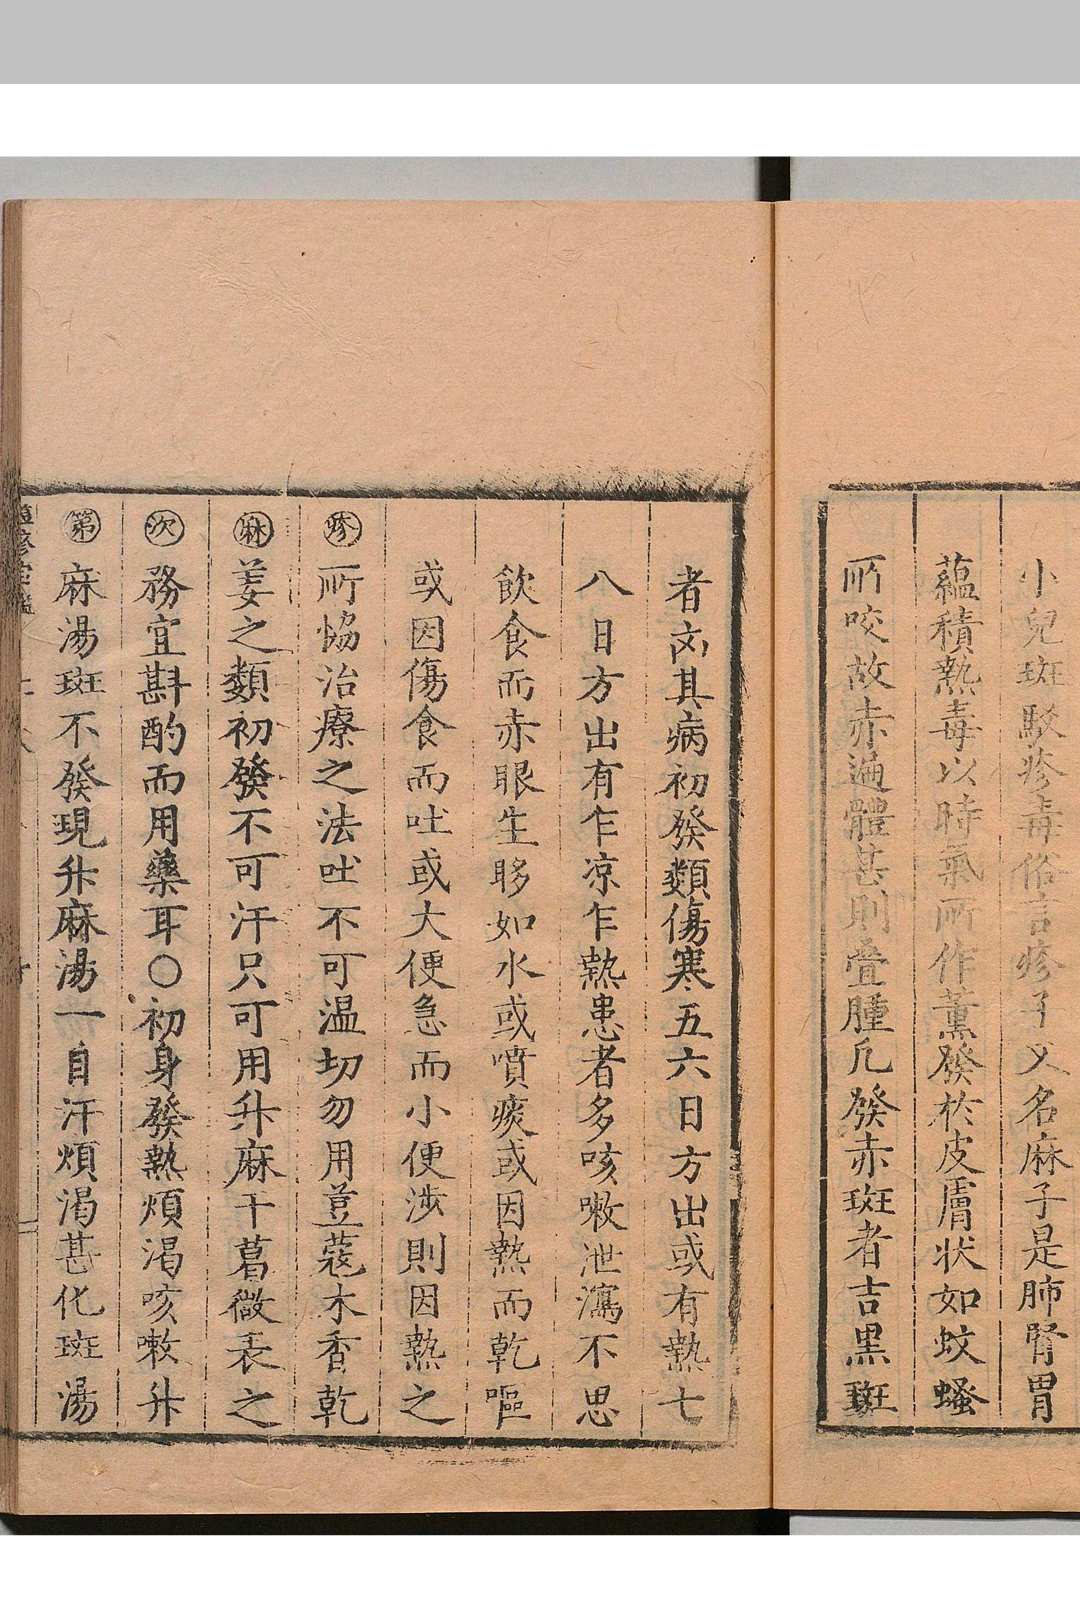 小兒斑駁疹毒俗言疹子又名麻子是肺腎胃
蘊積熱毒以時氣所作薰發於皮膚狀如蚊蠽
所咬故赤遍體甚則疊腫凡發赤斑者吉黑斑
者凶其病初發類傷寒五六日方出或有熱七
八日方出有乍凉乍熱患者多咳嗽泄瀉不思
飲食而赤眼生眵如水或噴痰或因熱而乾嘔
或因傷食而吐或大便急而小便涉則因熱之
㊀所恊治療之法吐不可温切勿用荳蔻木香乾
姜之類初發不可汗只可用升麻干葛微表之
務宜斟酌而用藥耳○初身發熱煩渴咳嗽升
麻湯斑不發現升麻湯一自汗煩渴甚化斑湯
疹
麻
次
第